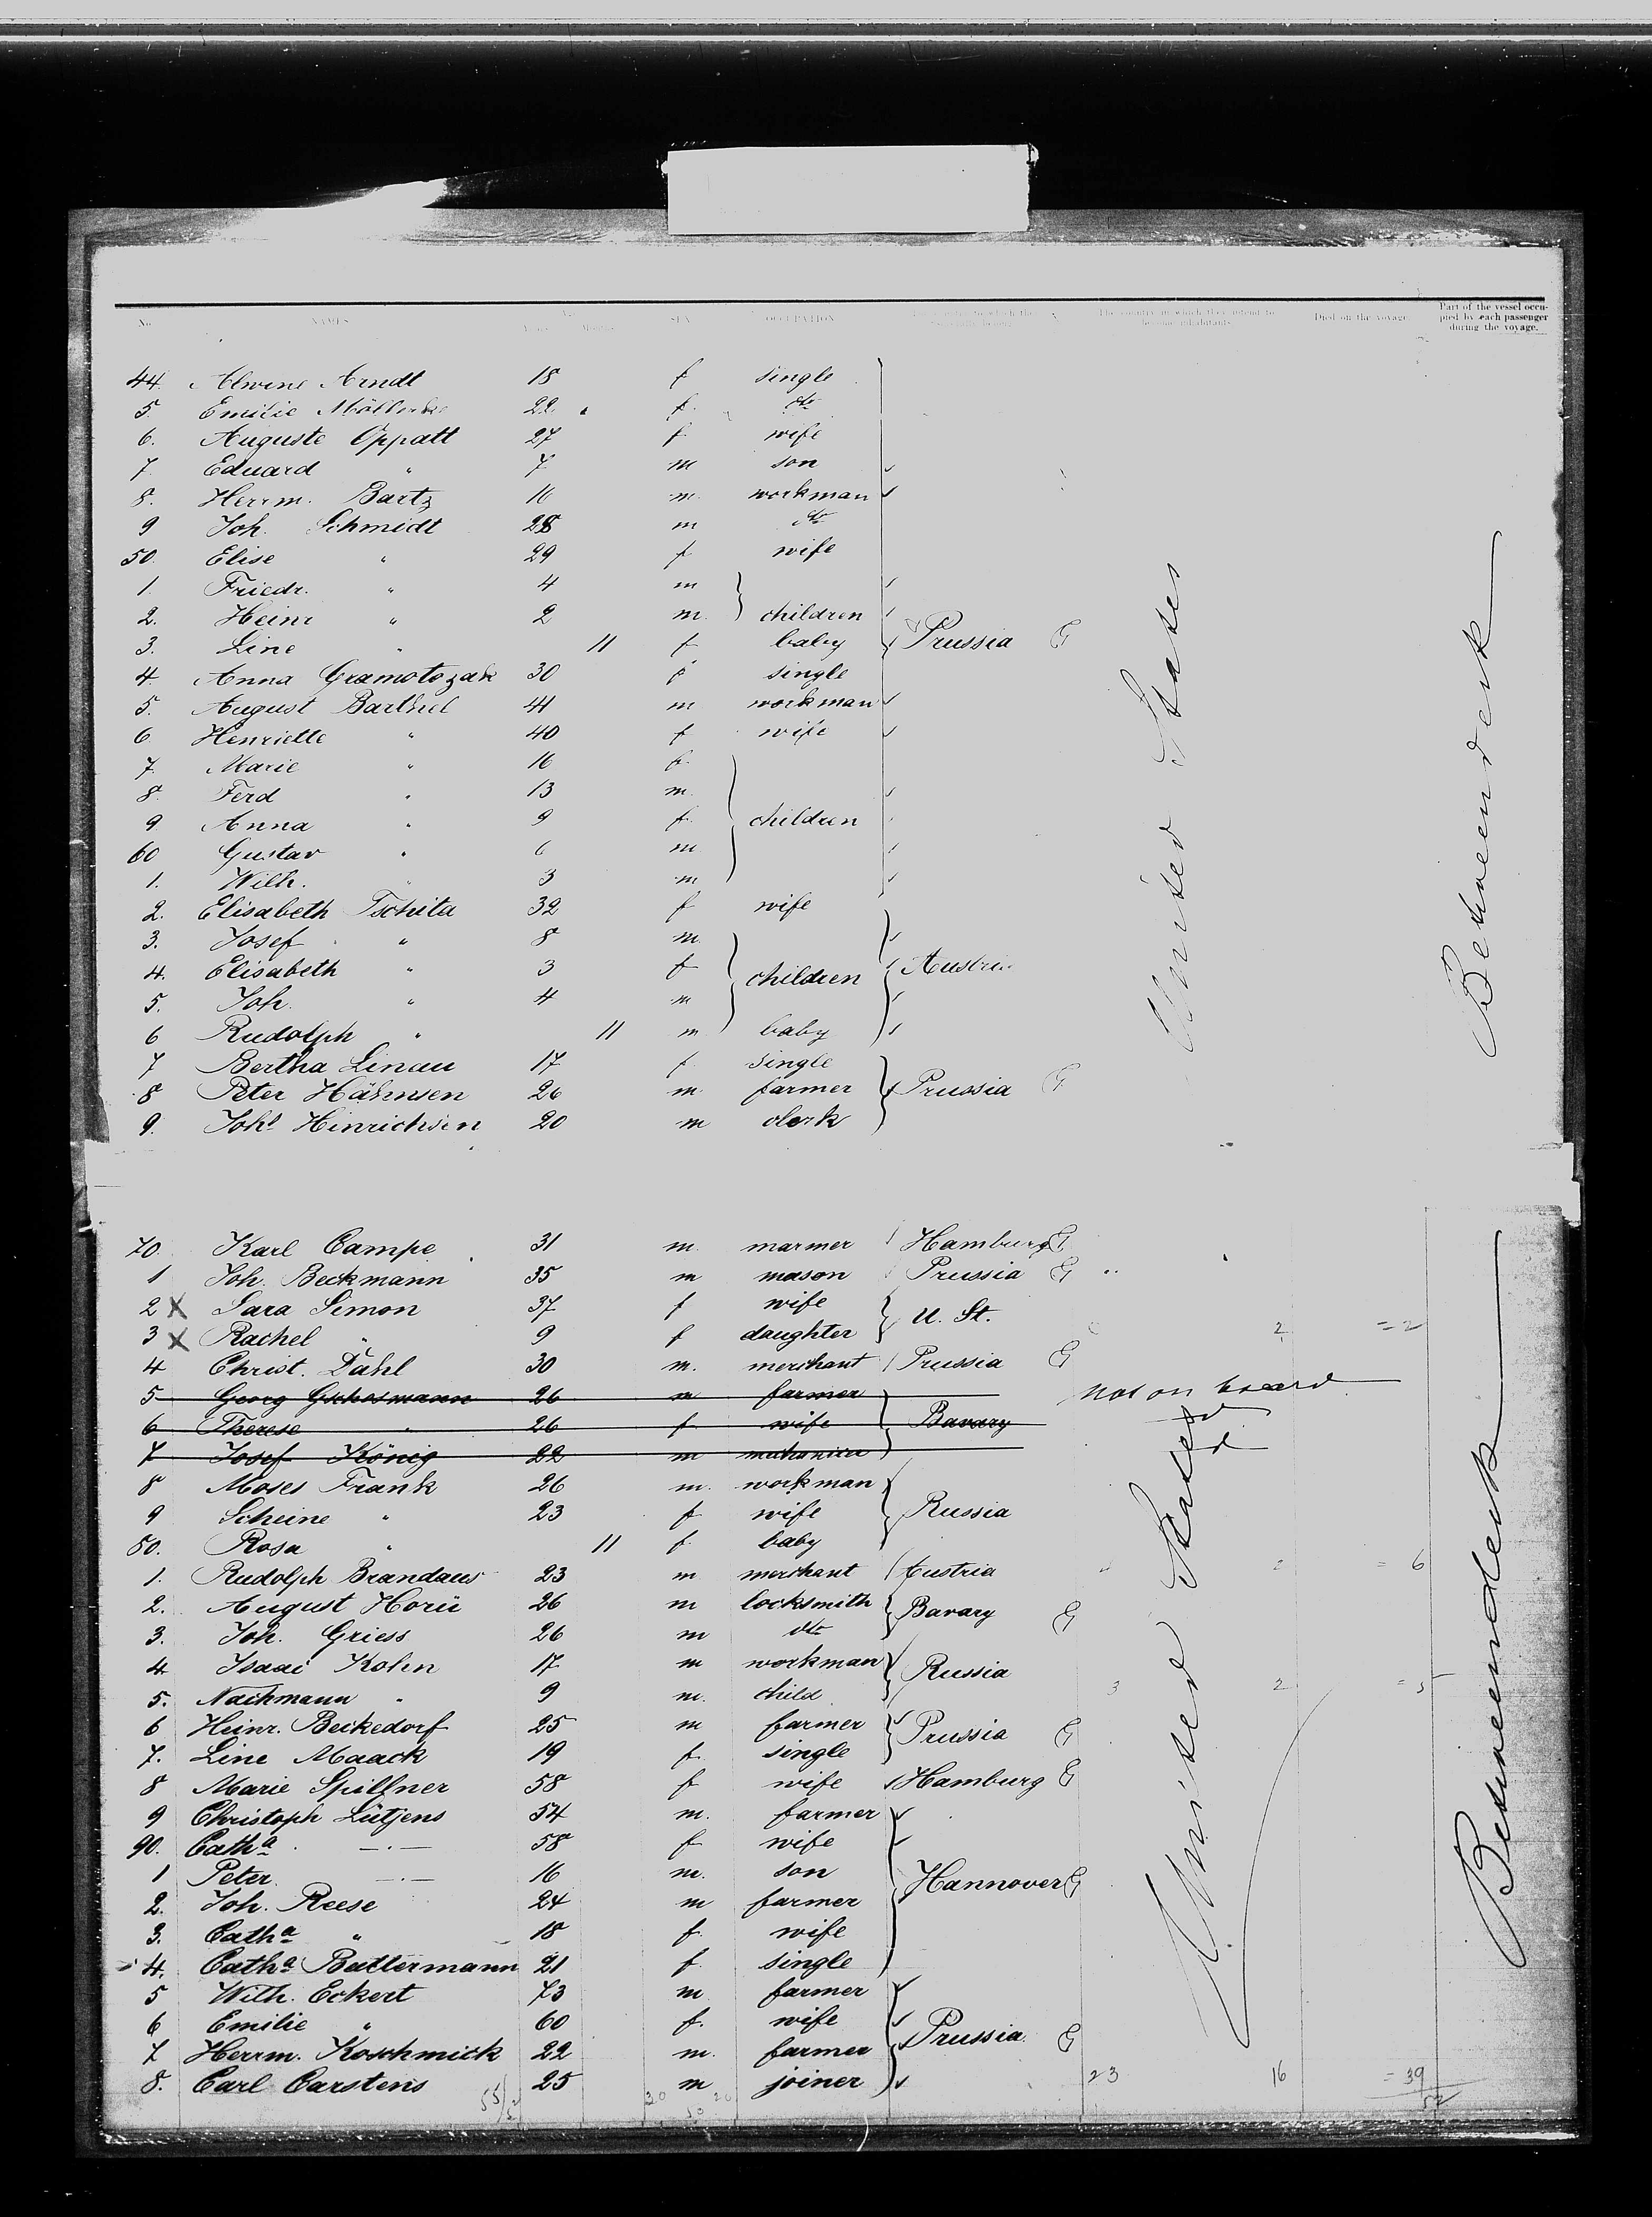 No. NAMES Years Months SEX OCCUPATION The country in which they intend to become inhabitants Died on the voyage Part of the vessel occupied by each passenger during the voyage.
44. Alwine Arndt 18 f single
5. Emilie 22 f dto
6. Auguste Oppatt 27 f wife
7. Eduard " 7 m son
8. Herrm. Bartz 16 m workman
9 Joh. Schmidt 28 m dto
50. Elise " 29 f wife
1. Friedr. " 4 m
2. Heinr " 2 m. children
3. Line " 11 f baby Prussia G
4. Anna Gramotozak 30 f single
5. August Barthel 41 m workman
6. Henriette " 40 f wife
7. Marie " 16 f.
8. Ferd " 13 m.
9. Anna " 9 f. children
60 Gustav " 6 m
1. Wilh. " 3 m
2. Elisabeth Tschita 32 f wife
3. Josef " 8 m.
4. Elisabeth " 3 f children Austria
5. Joh. " 4 m
6 Rudolph " 11 m baby
7 Bertha Linau 17 f single
8 Peter Hähnsen 26 m farmer Prussia G
9. Johs Hinrichsen 20 m clerk
United States
Betweendeck
70. Karl Campe 31 m. marmer Hamburg G
1 Joh. Beckmann 35 m mason Prussia G
2 X Sara Simon 37 f wife U. St.
3 X Rachel " 9 f daughter 2 = 2
4 Christ. Dahl 30 m. merchant Prussia G
5 Georg Gschosmann 26 m farmer not on board
6 Therese " 26 f wife Bavary
7 Josef König 22 m mechanica
8 Moses Frank 26 m. workman
9 Scheine " 23 f wife Russia
80. Rosa " 11 f. baby
1. Rudolph Brandaus 23 m merchant Austria 2 = 6
2. August Horü 26 m locksmith Bavary G
3. Joh. Griess 26 m dto
4 Isaac Kohn 17 m workman Russia
5. Nachmann " 9 m. child 3 2 = 5
6 Heinr. Beckedorf 25 m farmer Prussia G
7. Line Maack 19 f. single
8 Marie Spillner 58 f wife Hamburg G
9 Christoph Lütjens 54 m. farmer
90. Catha —.— 58 f wife
1 Peter —.— 16 m. son Hannover G
2. Joh. Reese 24 m farmer
3. Catha " 18 f. wife
4. Catha Buttermann 21 f. single
5 Wilh. Eckert 73 m farmer
6 Emilie " 60 f. wife Prussia G
7 Herrm. Koschmick 22 m. farmer
8. Carl Carstens 25 m joiner 23 16 = 39
52
United States
Betweendeck